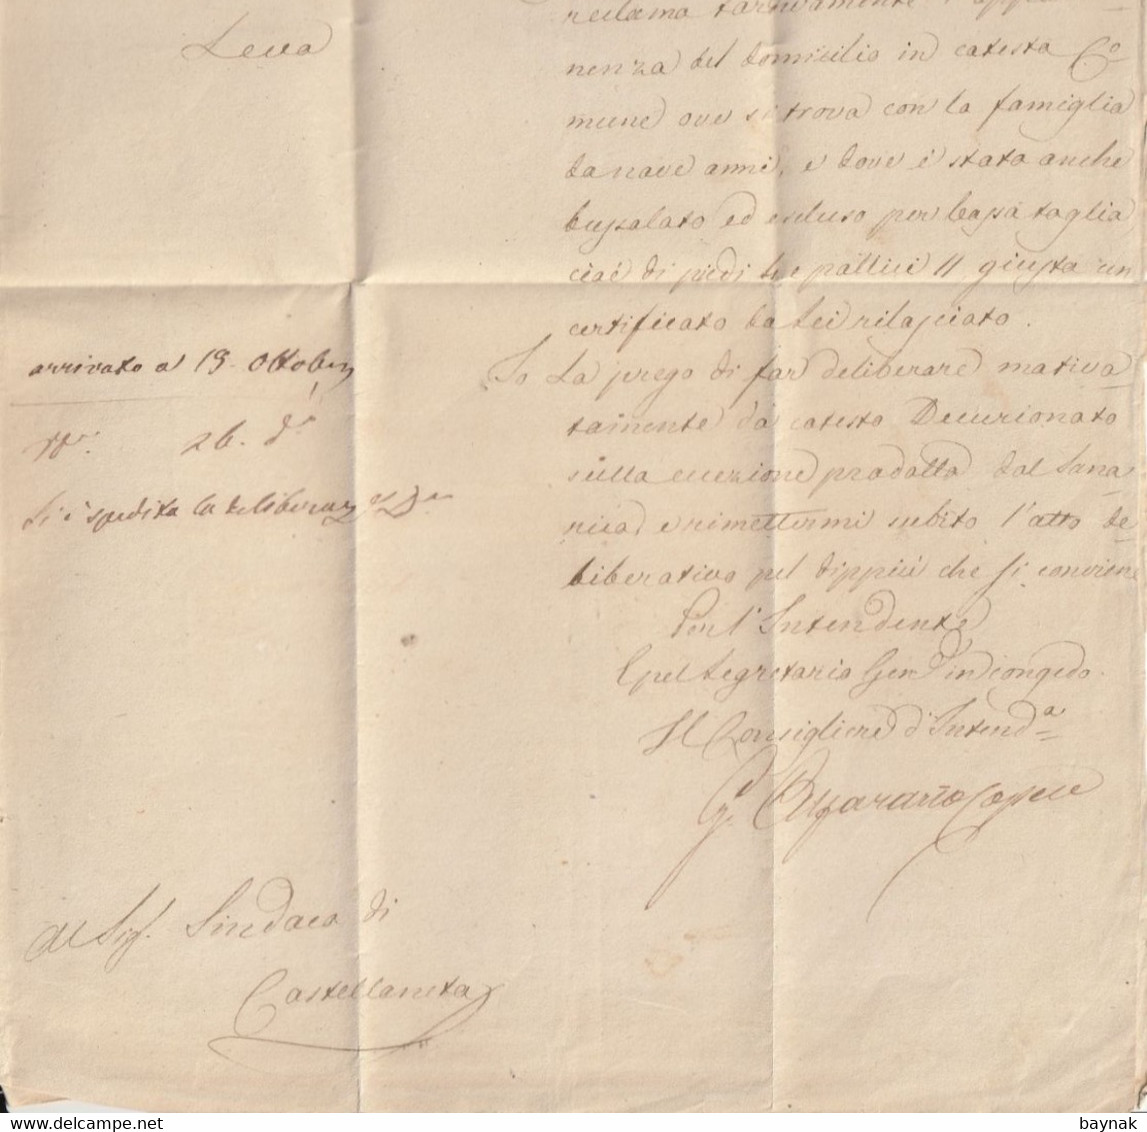 Leva
reclama tardivamente l'appar=
nenza del domicilio in cotesta Co=
mune ove si trova con la famiglia
da nove anni, e dove è stato anche
bussolato ed escluso per bassa taglia
cioè di piedi tre pollici 11 giusta un
certificato da Lei rilasciato.
Io La prego di far deliberare motiva=
tamente da cotesto Decurionato
sulla eccezione prodotta dal Sana=
rica, e rimettermi subito l'atto de=
liberativo pel dippiù che si conviene
Per l'Intendente
E pel Segretario Gen.l in congedo
Il Consigliere d'Intend.a
arrivato a 19 Ottobre
26. d.o
Si è spedita la deliberaz.
Al Sig. Sindaco di
Castellaneta
baynak